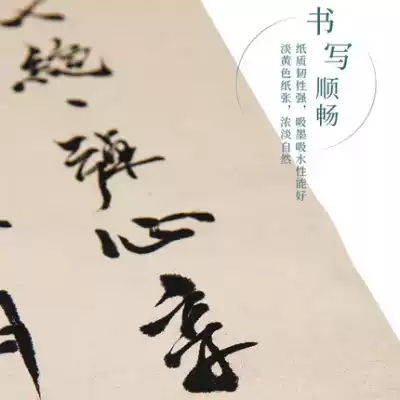 书写顺畅
纸质韧性强，吸墨吸水性能好
淡黄色纸张，浓淡自然
心